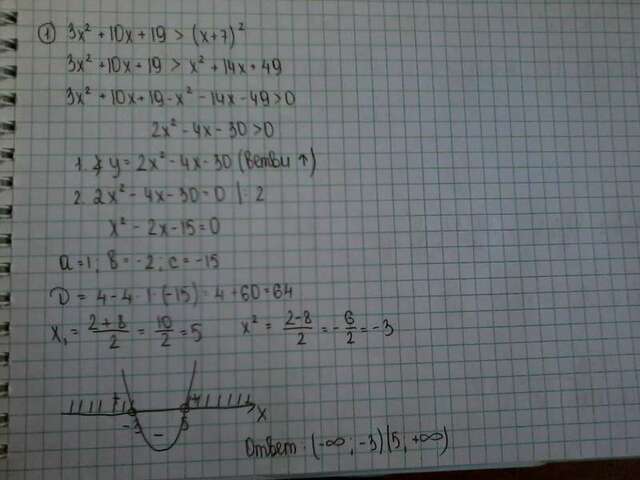 ① 3x² + 10x + 19 > (x+7)²
3x² + 10x + 19 > x² + 14x + 49
3x² + 10x + 19 - x² - 14x - 49 > 0
2x² - 4x - 30 > 0
1. y = 2x² - 4x - 30 (ветви ↑)
2. 2x² - 4x - 30 = 0 | : 2
x² - 2x - 15 = 0
a = 1; b = -2; c = -15
D = 4 - 4 · 1 · (-15) = 4 + 60 = 64
x₁ = (2+8)/2 = 10/2 = 5 x² = (2-8)/2 = -6/2 = -3
+ - +
-3 5 x
Ответ: (-∞; -3)(5; +∞)